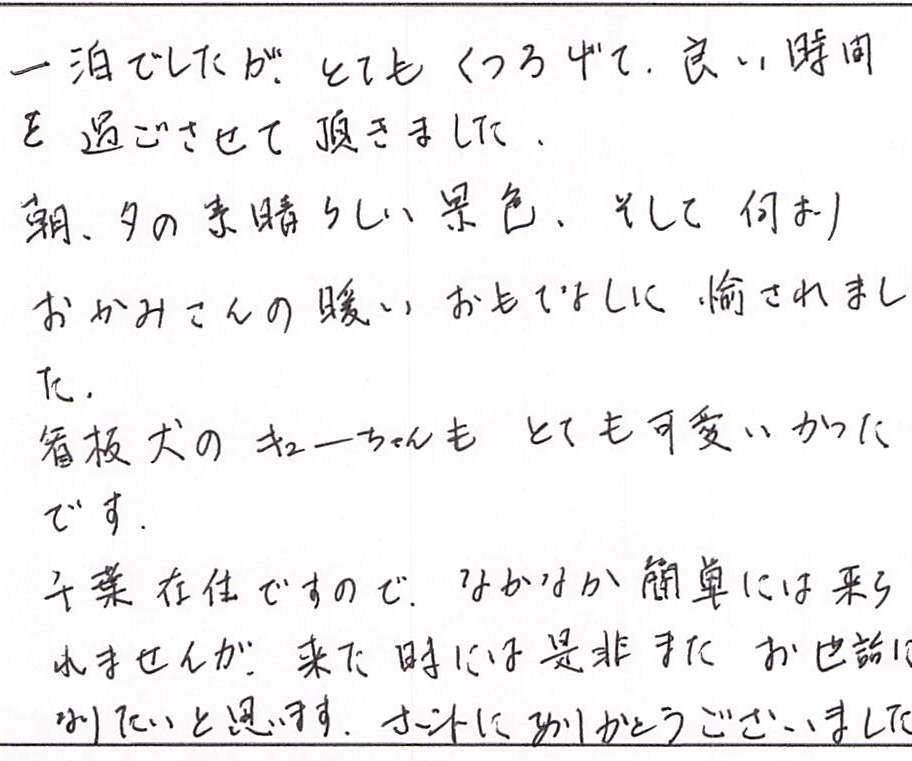 一泊でしたが、とてもくつろげて、良い時間
を過ごさせて頂きました。
朝、夕の素晴らしい景色、そして何より
おかみさんの暖いおもてなしに愉されまし
た。
看板犬のキューちゃんもとても可愛いかった
です。
千葉在住ですので、なかなか簡単には来ら
れませんが、来た時には是非またお世話に
なりたいと思います。ホントにありがとうございました